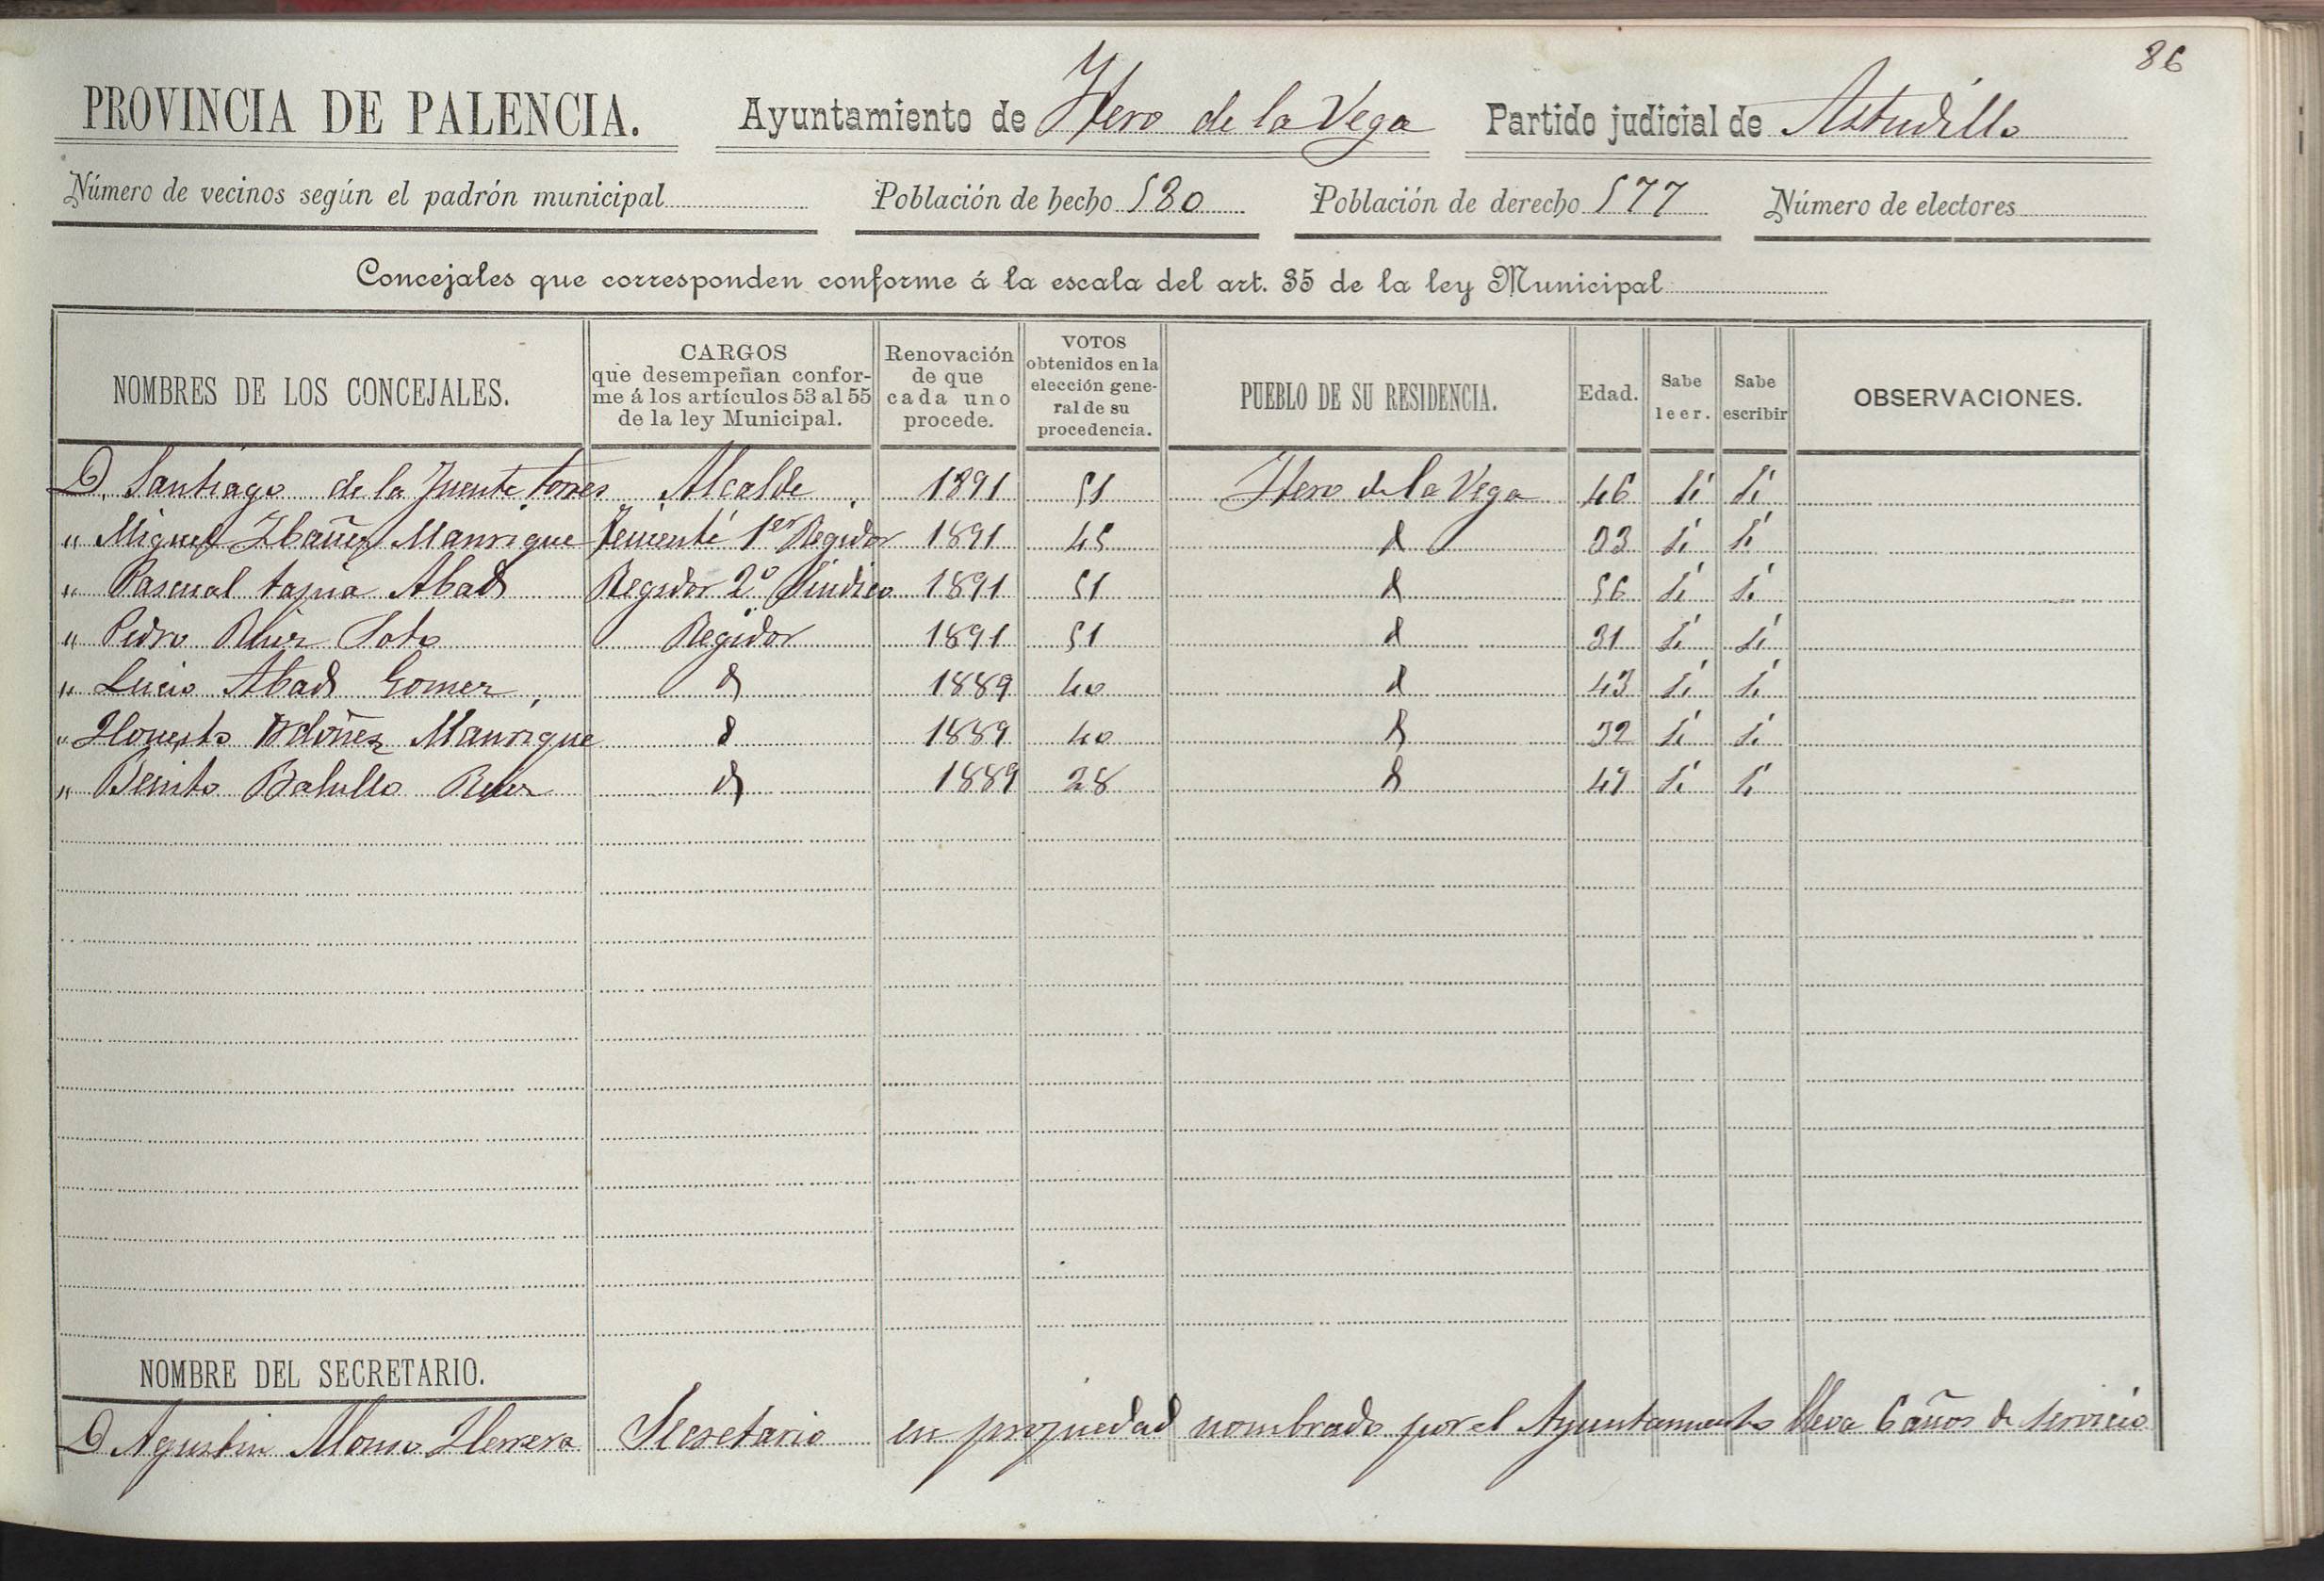 86
PROVINCIA DE PALENCIA. Ayuntamiento de Ytero de la Vega Partido judicial de Astudillo
Número de vecinos según el padrón municipal Población de hecho 580 Población de derecho 577 Número de electores
Concejales que corresponden conforme á la escala del art. 35 de la ley Municipal
NOMBRES DE LOS CONCEJALES. CARGOS que desempeñan conforme á los artículos 53 al 55 de la ley Municipal. Renovación de que cada uno procede. VOTOS obtenidos en la elección general de su procedencia. PUEBLO DE SU RESIDENCIA. Edad. Sabe leer. Sabe escribir OBSERVACIONES.
D. Santiago de la Fuente torres Alcalde 1891 51 Ytero de la Vega 46 Sí Sí
" Miguel Ibañez Manrique Teniente 1er Regidor 1891 45 d 33 Sí Sí
" Pascual tapia Abad Regidor 2º Síndico 1891 51 d 56 Sí Sí
" Pedro Ruiz Soto Regidor 1891 51 d 31 Sí Sí
" Lucio Abad Gomez d 1889 40 d 43 Sí Sí
" Honesto Ordoñez Manrique d 1889 40 d 32 Sí Sí
" Benito Ruiz d 1889 28 d Sí Sí
NOMBRE DEL SECRETARIO.
D Agustin Alonso Herrera Secretario en propiedad nombrado por el Ayuntamiento lleva 6 años de servicio